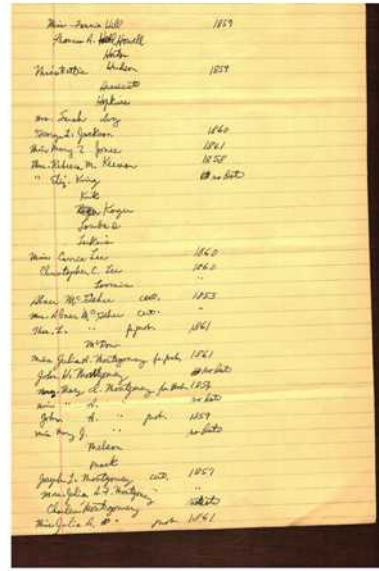 Miss Fannie Hill 1859
Thomas A. Howell
Horton
Miss Hattie Hudson 1859
Hopkins
Mrs. Sarah Ivy
George L. Jackson 1860
Miss Mary Z. Jones 1861
Mrs. Rebecca M. Keenan 1858
" Eliz. King no date
Kirk
Koger
Miss Carrie Lee 1860
Christopher C. Lee 1860
Loomis "
Abner McGehee cert. 1853
Mrs. Abner McGehee cert. "
Thos. L. " fr. prob. 1861
McDow
Miss Julia A. Montgomery fr. prob. 1861
John V. Montgomery no date
Mrs. Mary A. Montgomery fr. prob. 1859
Miss " A. " no date
John A. " prob. 1859
Miss Mary J. " no date
Melson
Mack
Joseph L. Montgomery cert. 1857
Mrs. Julia A. F. Montgomery "
Charles Montgomery no date
Miss Julia A. " prob. 1861